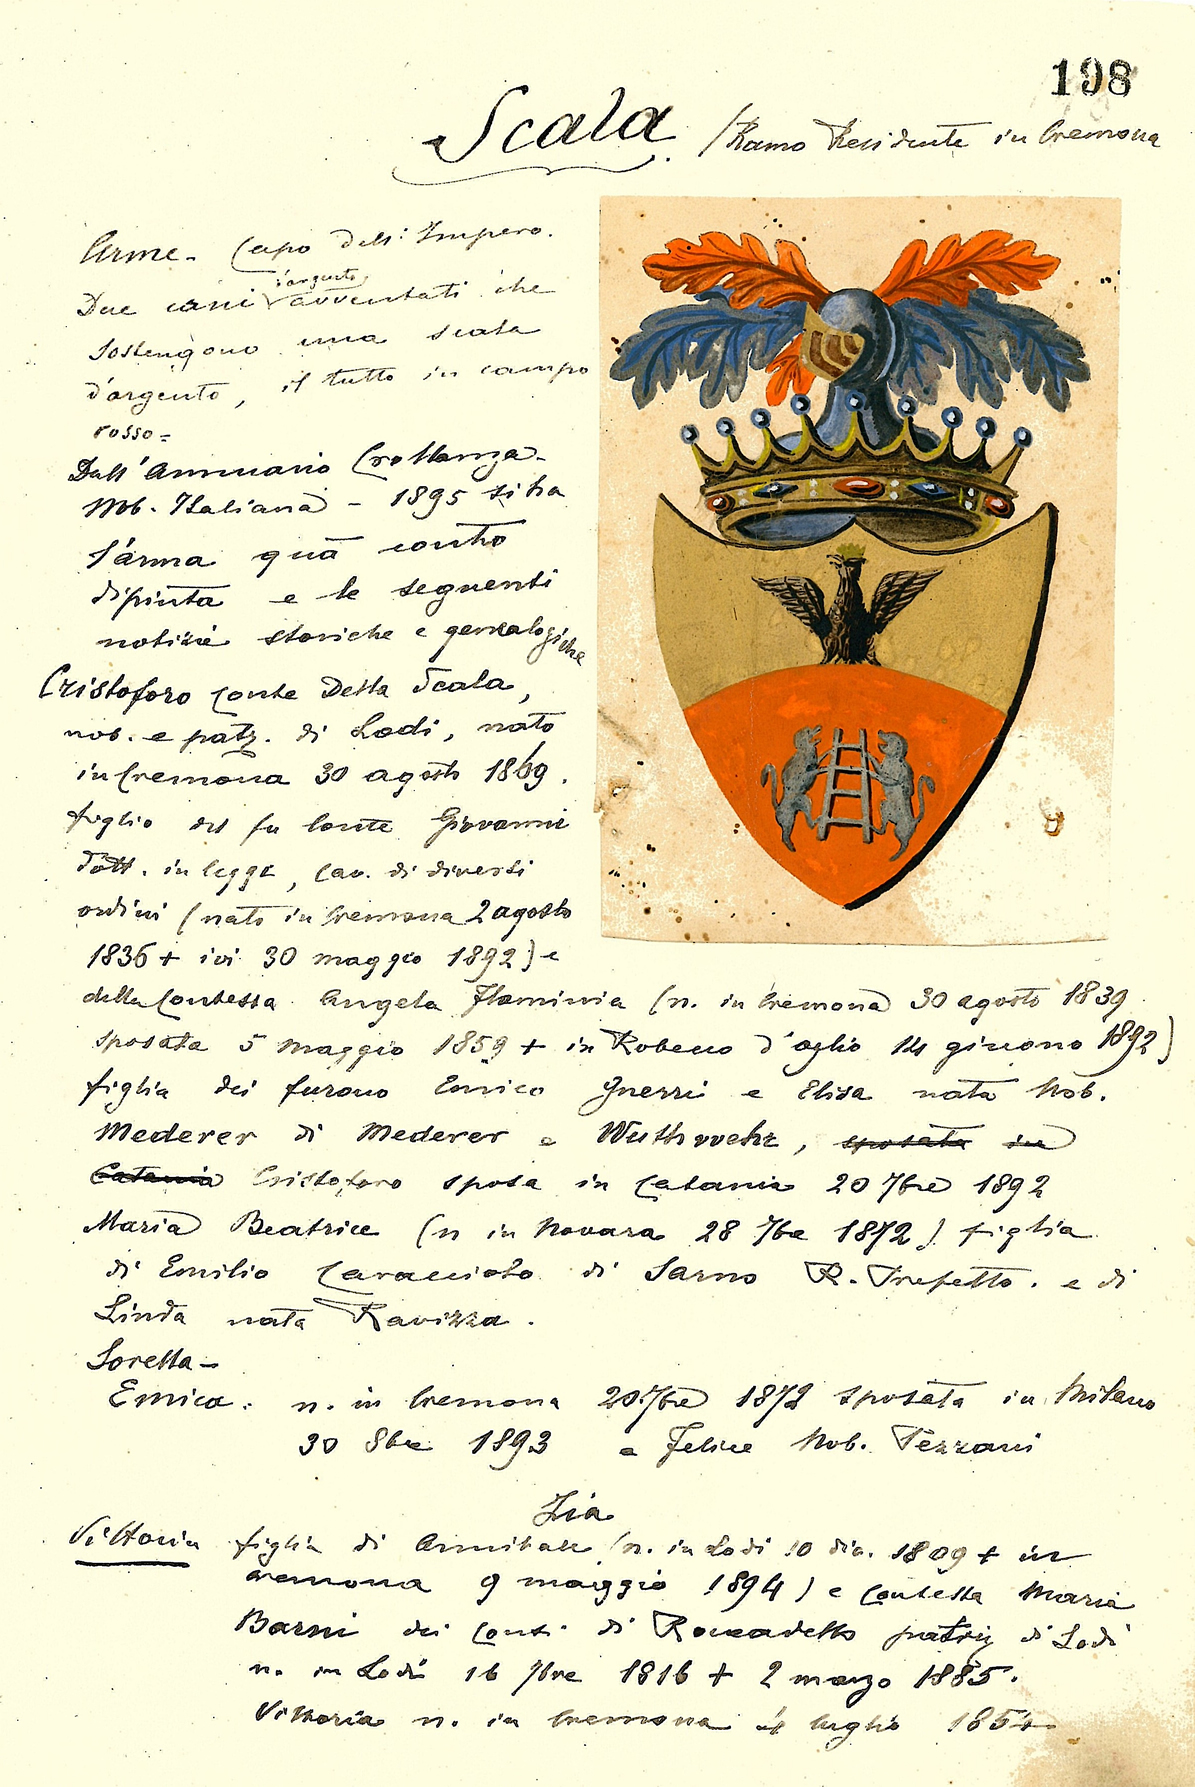 198
Scala. / Ramo Residente in Cremona
Arme - Capo dell'Impero.
Due cani d'argento avventati che
sostengono una scala
d'argento, il tutto in campo
rosso =
Dall'Annuario Crollanza -
Nob. Italiana - 1895 si ha
l'arma quà contro
dipinta e le seguenti
notizie storiche e genealogiche
Cristoforo conte Della Scala,
nob. e patz. di Lodi, nato
in Cremona 30 agosto 1869.
figlio del fu conte Giovanni
dott. in legge, cav. di diversi
ordini (nato in Cremona 2 agosto
1836 + ivi 30 maggio 1892) e
della Contessa Angela Flaminia (n. in Cremona 30 agosto 1839
sposata 5 maggio 1859 + in Robecco d'oglio 14 giugno 1892)
figlia dei furono Enrico Guerri e Elisa nata Nob.
Mederer di Mederer e Wuthwehr, sposata in
Catania Cristoforo sposa in Catania 20 7bre 1892
Maria Beatrice (n in Novara 28 7be 1872) figlia
di Emilio Caracciolo di Sarno R. Prefetto. e di
Linda nata Ravizza.
Sorella -
Enrica. n. in Cremona 20.7bre 1872 sposata in Milano
30 8bre 1893 a Felice Nob. Terzani
Zia
Vittoria figlia di Annibale (n. in Lodi 10 dic. 1809 + in
Cremona 9 maggio 1894) e contessa Maria
Barni dei Conti di Roccadello patrizj di Lodi
n. in Lodi 16 7bre 1816 + 2 marzo 1885.
Vittoria n. in Cremona luglio